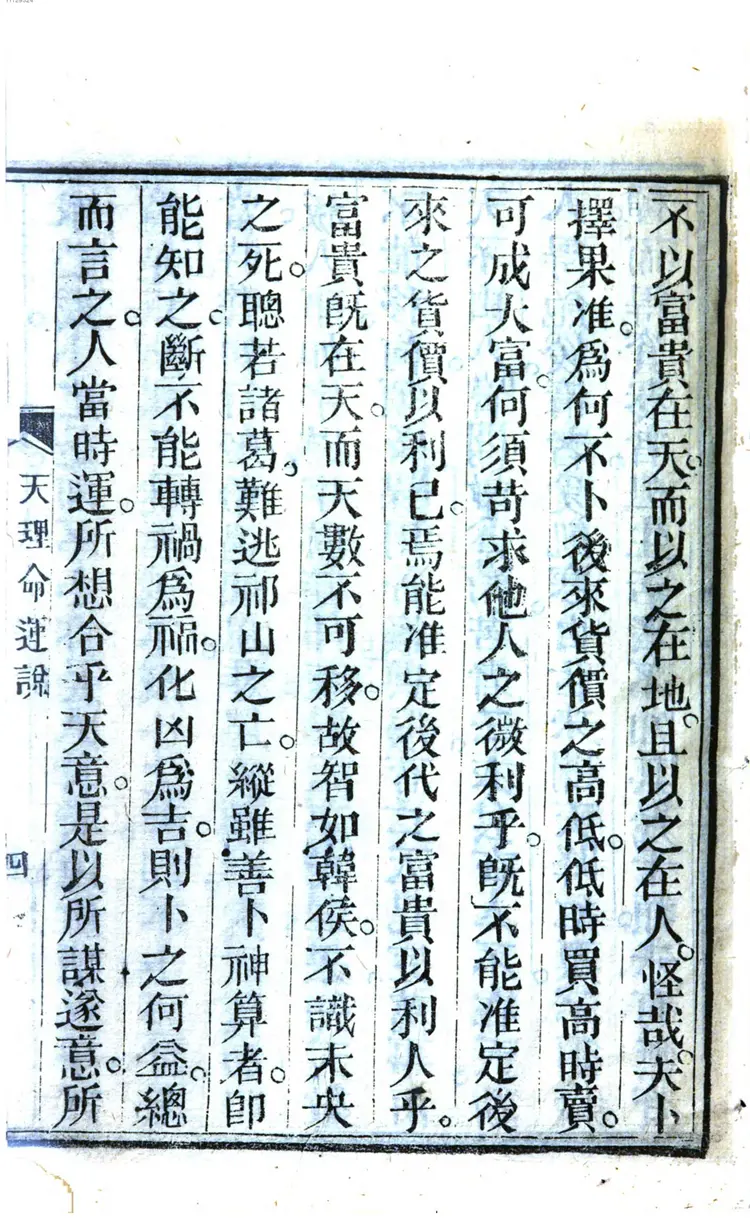 不以富貴在天。而以之在地。且以之在人。怪哉。夫卜
擇果准。爲何不卜後來貨價之高低。低時買高時賣。
可成大富。何須苛求他人之微利乎。旣不能准定後
來之貨價以利己。焉能准定後代之富貴以利人乎。
富貴旣在天。而天數不可移。故智如韓侯。不識未央
之死。聰若諸葛。難逃祁山之亡。縱雖善卜神算者。卽
能知之。斷不能轉禍爲福。化凶爲吉。則卜之何益。總
而言之。人當時運。所想合乎天意。是以所謀遂意。所
天理命運說
四